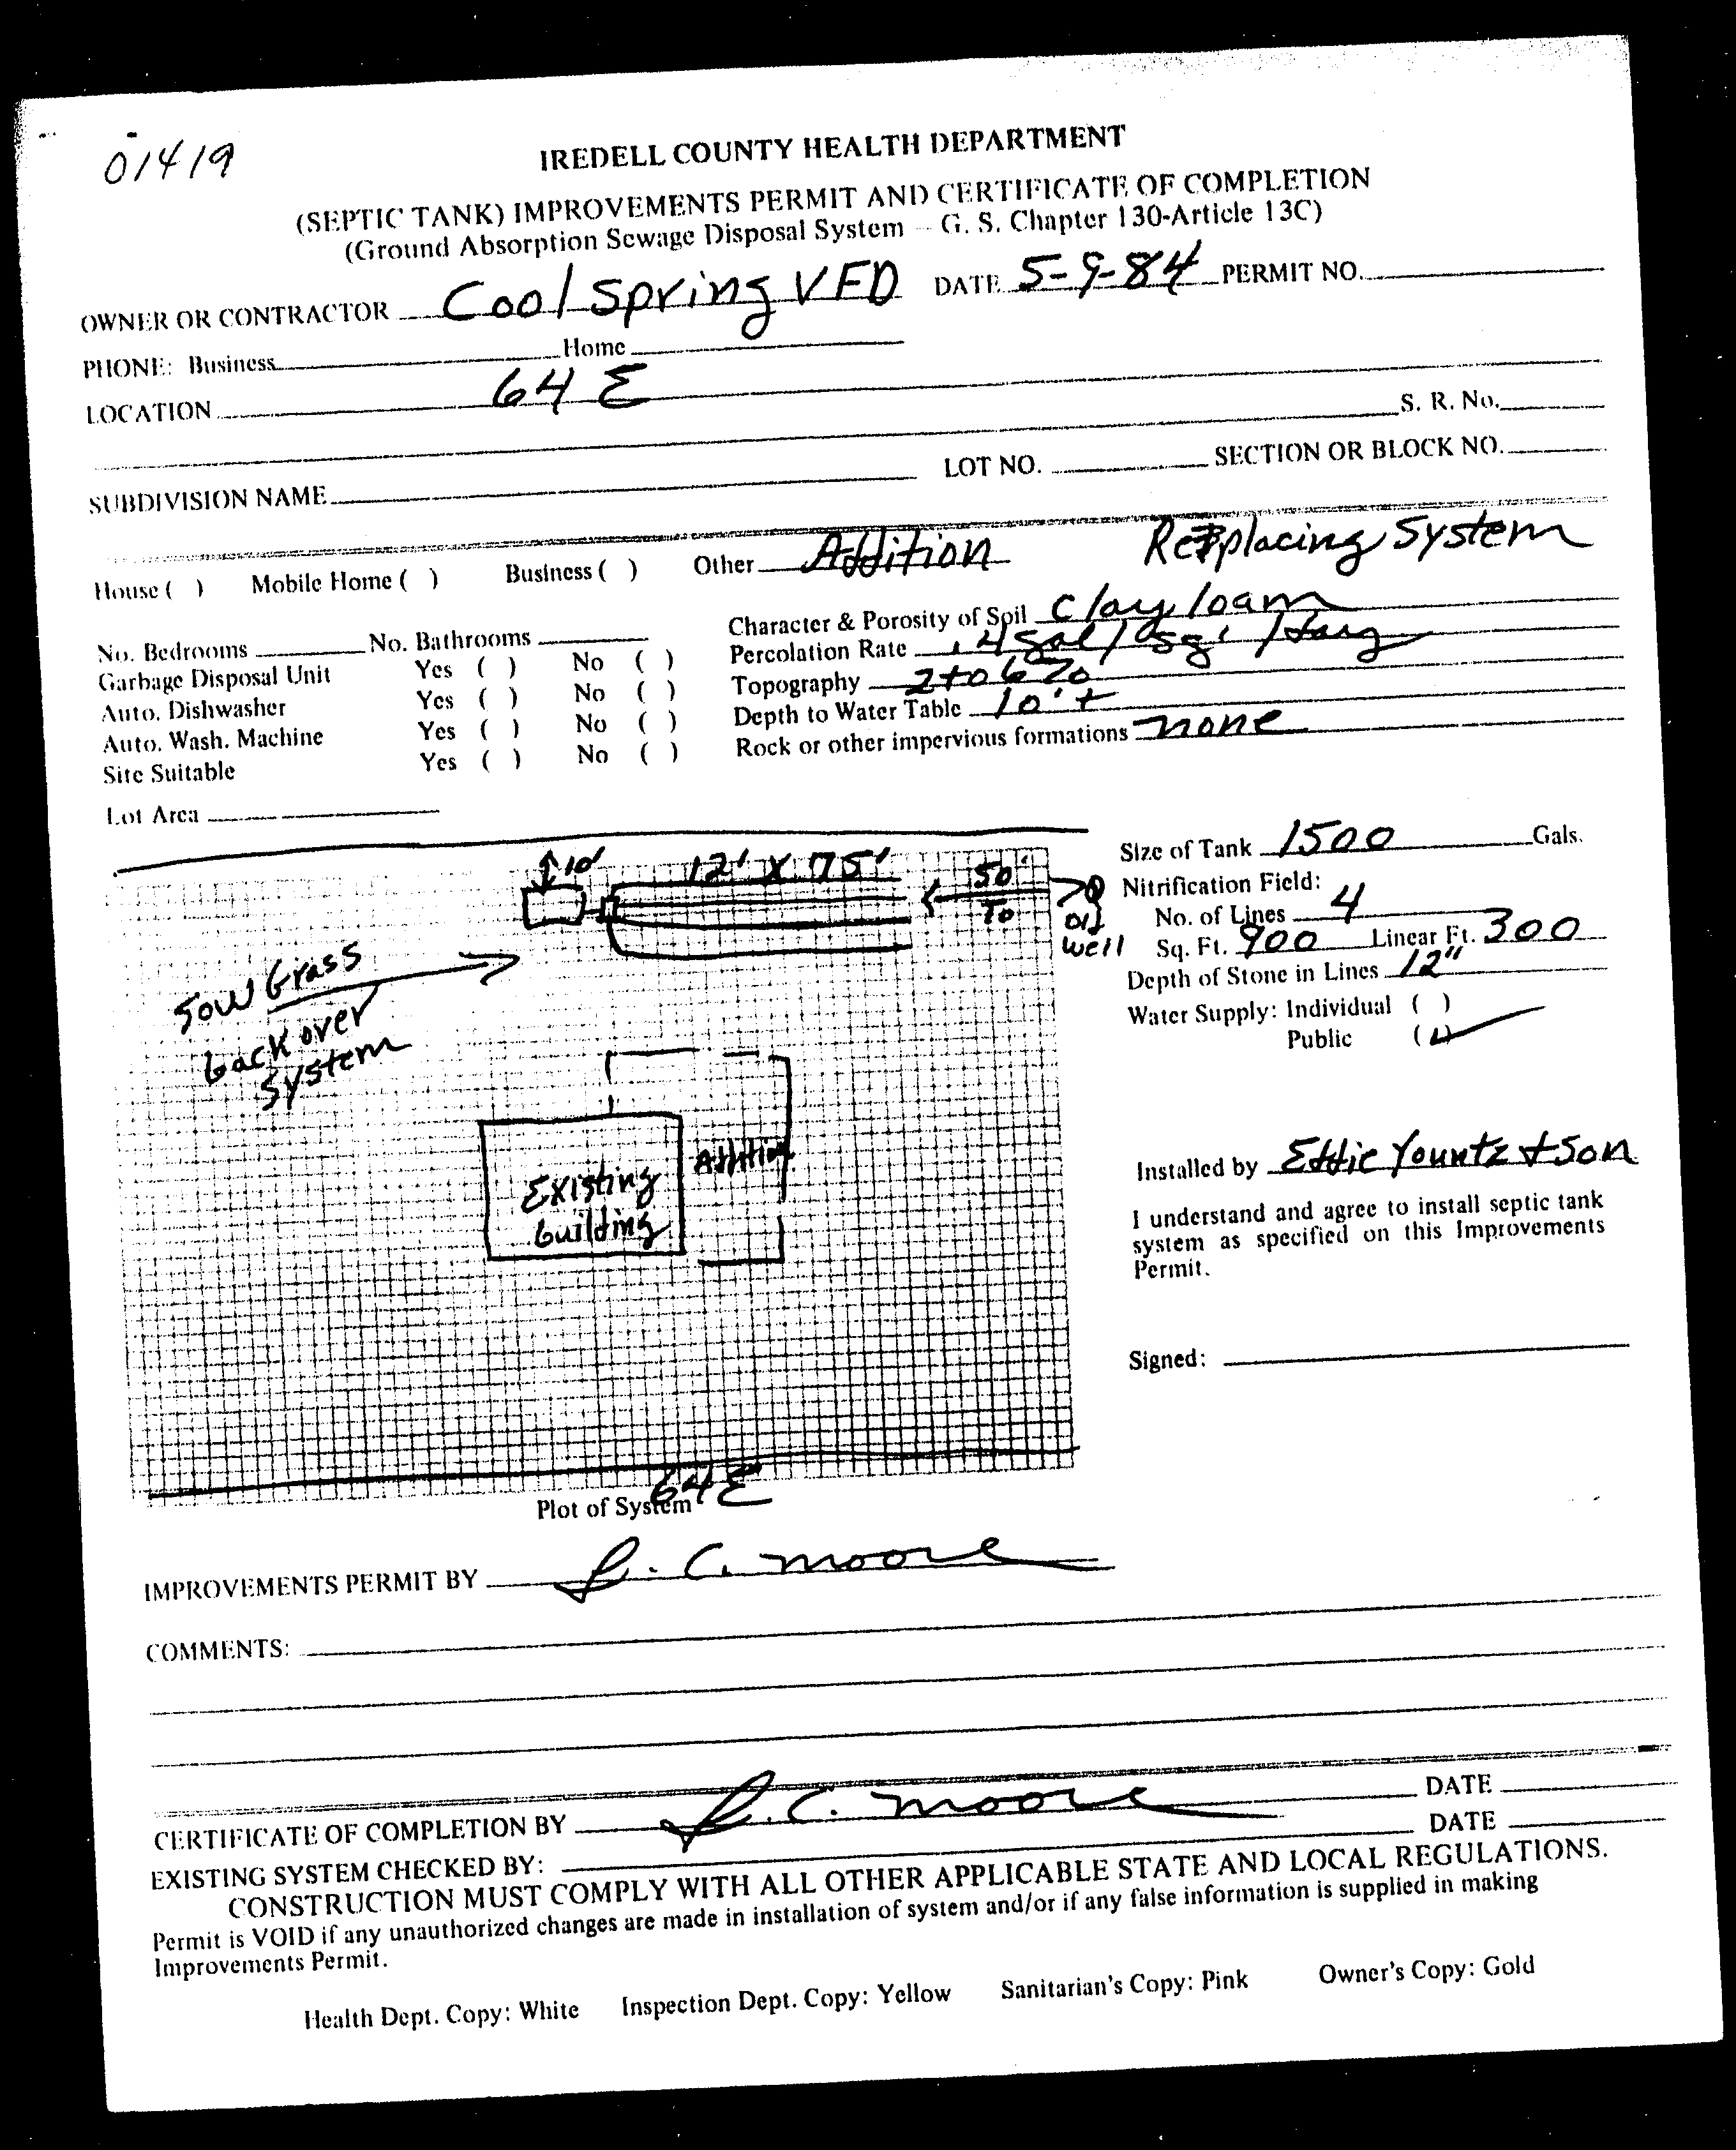 01419
IREDELL COUNTY HEALTH DEPARTMENT
(SEPTIC TANK) IMPROVEMENTS PERMIT AND CERTIFICATE OF COMPLETION
(Ground Absorption Sewage Disposal System – G. S. Chapter 130-Article 13C)
OWNER OR CONTRACTOR Cool Spring VFD DATE 5-9-84 PERMIT NO.
PHONE: Business Home
LOCATION 64 E
S. R. No.
SUBDIVISION NAME LOT NO. SECTION OR BLOCK NO.
House ( ) Mobile Home ( ) Business ( ) Other Addition Replacing System
No. Bedrooms No. Bathrooms
Garbage Disposal Unit Yes ( ) No ( )
Auto. Dishwasher Yes ( ) No ( )
Auto. Wash. Machine Yes ( ) No ( )
Site Suitable Yes ( ) No ( )
Lot Area
Character & Porosity of Soil Clay loam
Percolation Rate .4 gal / sq ' /
Topography 2 to 6 %
Depth to Water Table 10' +
Rock or other impervious formations none
10'
12' X 75'
50
To
old
well
Sow Grass
back over
System
Existing
building
Addition
64 E
Plot of System
Size of Tank 1500 Gals.
Nitrification Field:
No. of Lines 4
Sq. Ft. 900 Linear Ft. 300
Depth of Stone in Lines 12"
Water Supply: Individual ( )
Public (✓)
Installed by Eddie Yountz + Son
I understand and agree to install septic tank
system as specified on this Improvements
Permit.
Signed:
IMPROVEMENTS PERMIT BY L. C. Moore
COMMENTS:
CERTIFICATE OF COMPLETION BY L. C. Moore DATE
EXISTING SYSTEM CHECKED BY: DATE
CONSTRUCTION MUST COMPLY WITH ALL OTHER APPLICABLE STATE AND LOCAL REGULATIONS.
Permit is VOID if any unauthorized changes are made in installation of system and/or if any false information is supplied in making
Improvements Permit.
Health Dept. Copy: White Inspection Dept. Copy: Yellow Sanitarian's Copy: Pink Owner's Copy: Gold